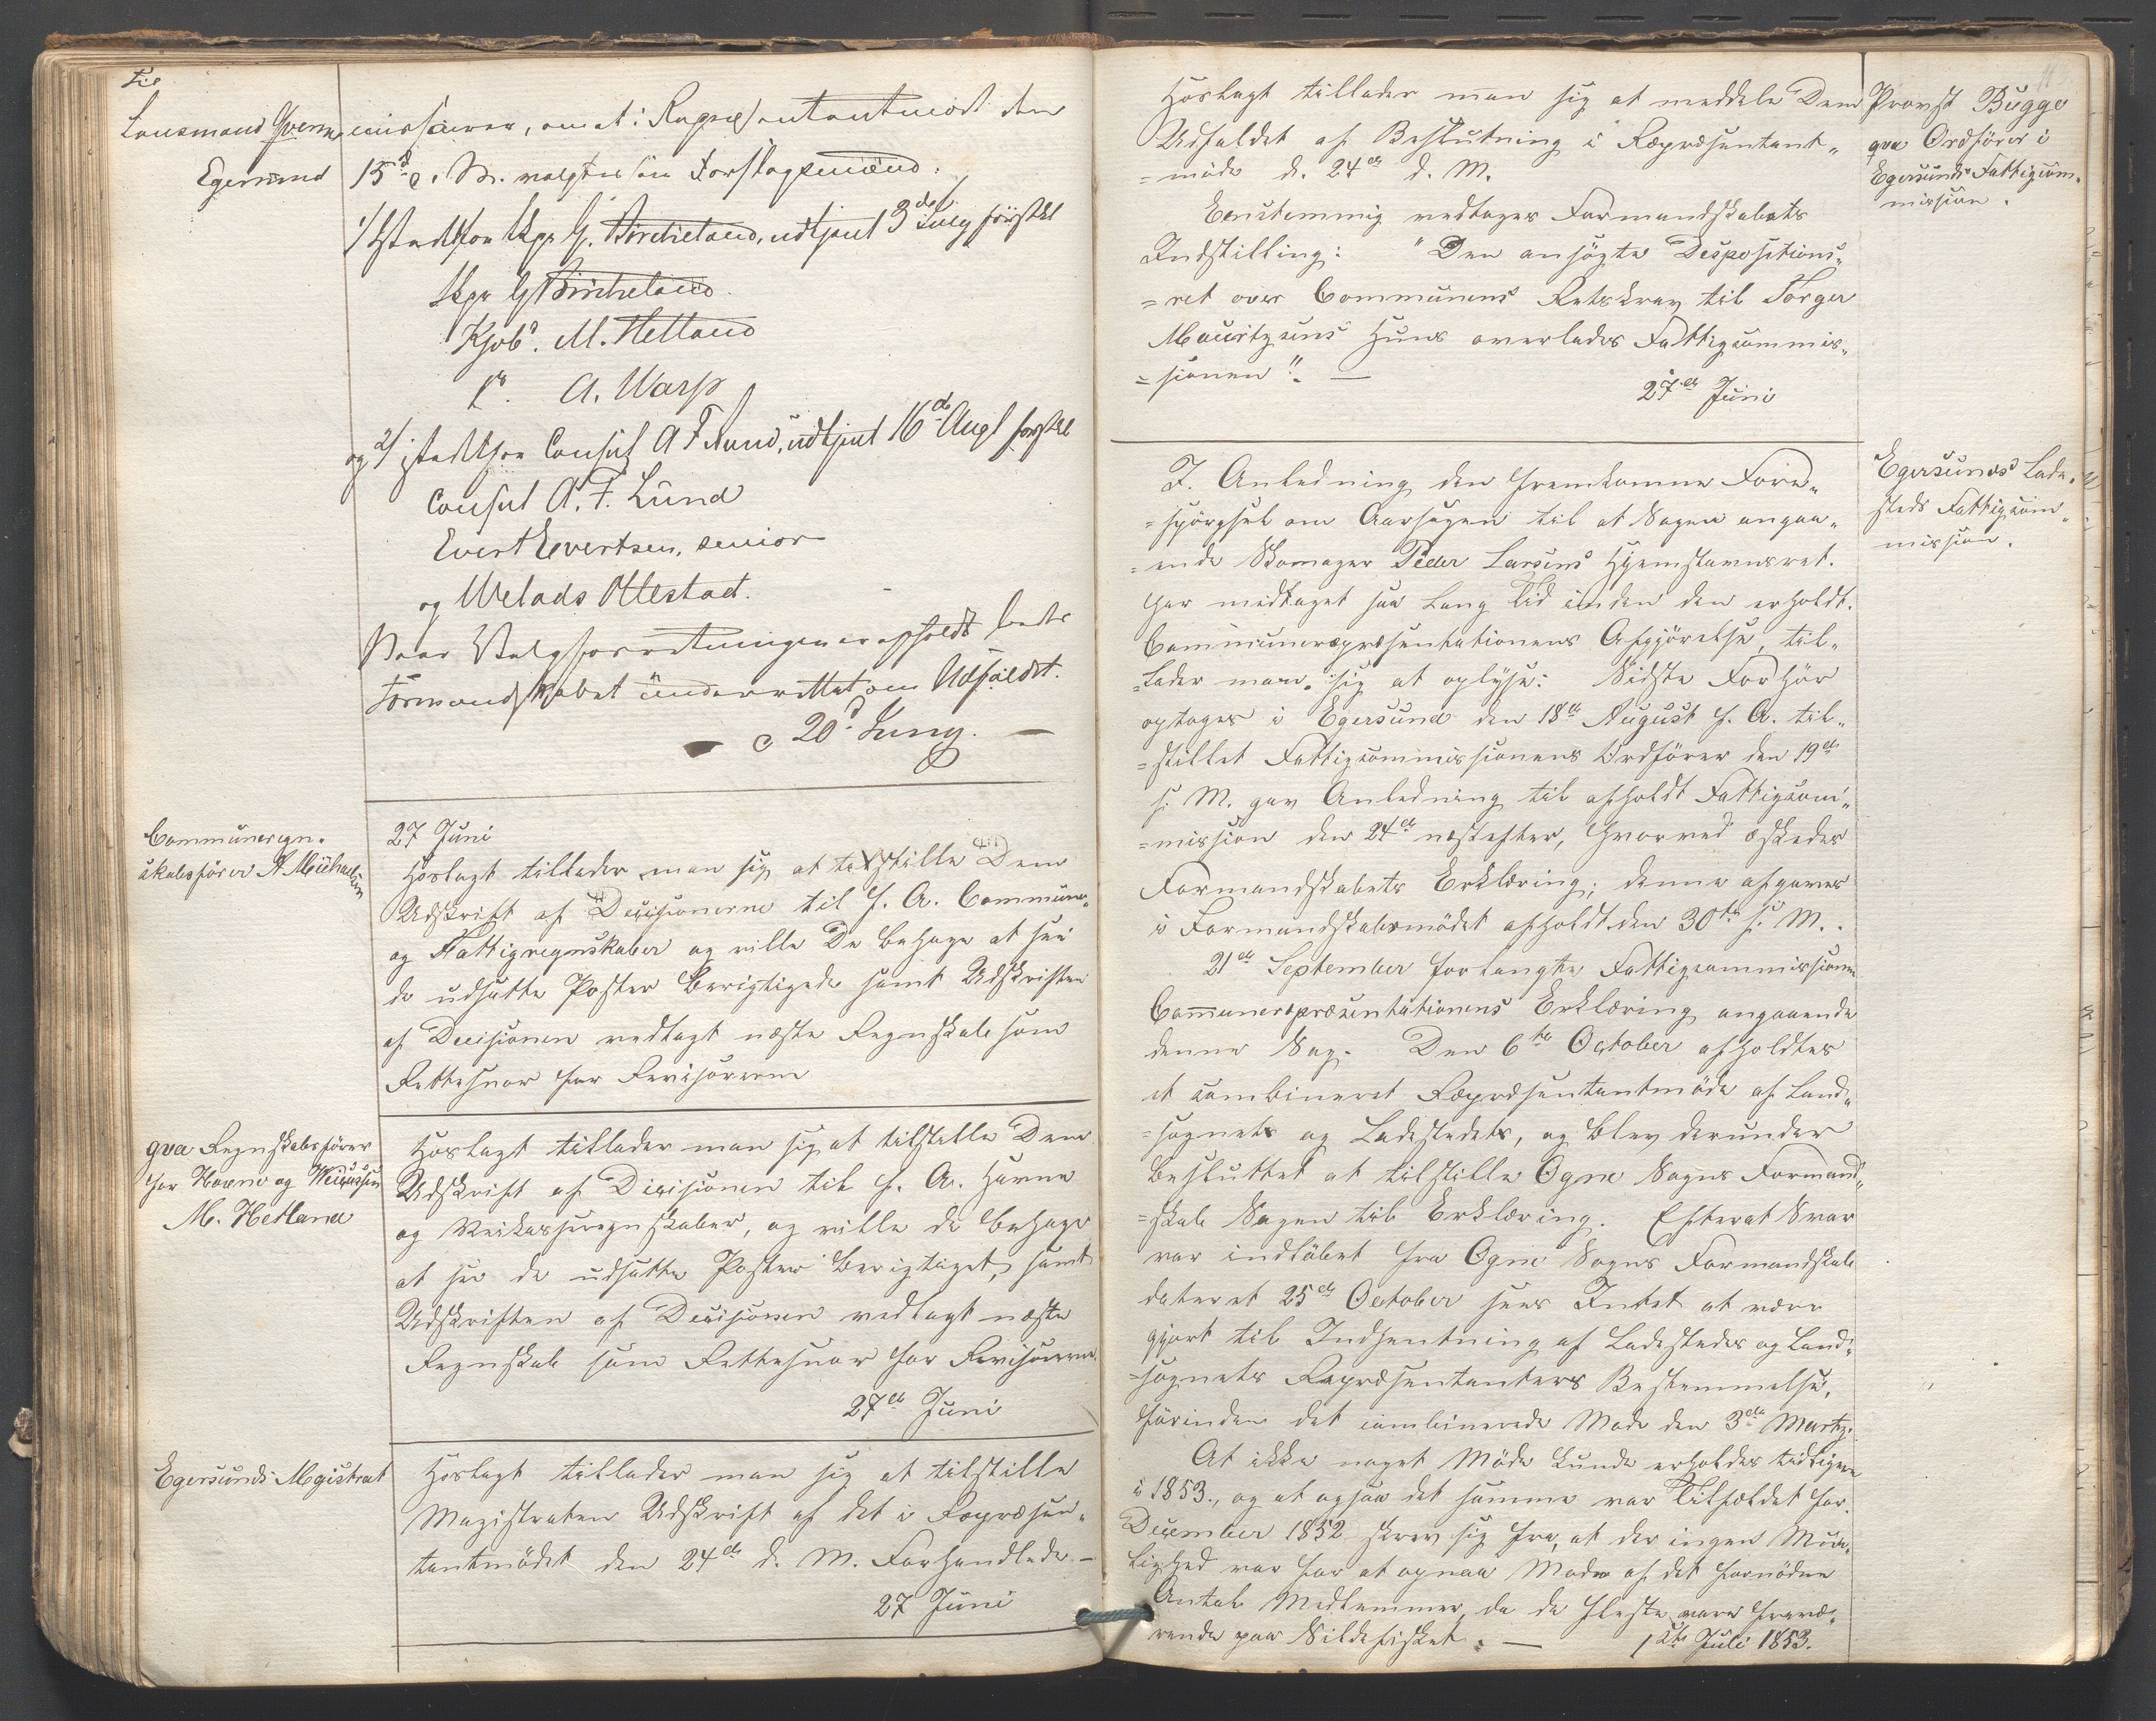 Til
Lensmand
Egersund
missairer, om at i Repræsentantmöde den
15d d. M. valgtes som Forslagsmænd:
1/ istedetfor Skpr G. Bircheland, udtjent 3de July förstk
Skpr G Bircheland
Kjöb. M. Hetland
do. A. Warp
og 2/ istedetfor Consul A F Lund, udtjent 16de Augt förstk
Consul A. F. Lund
Evert Evertsen, senior
og Welads Ollestad.
Naar Valgforretningen er afholdt bedes
Formandskabet underrettet om Udfaldet.
d 20d Juny.
Communeregn-
skabsförer A Michaelsen
27 Juni
Hoslagt tillader man sig at tilstille Dem
Udskrift af Decisionerne til f. A. Commune-
og Fattigregnskaber og ville De behage at see
de udsatte Poster berigtigede samt Udskriften
af Decisionen vedlagt næste Regnskab som
Rettesnor for Revisorerne
qva Regnskabsförer
for Havne og
M. Hetland
Hoslagt tillader man sig at tilstille Dem
Udskrift af Decisionen til f. A. Havne
og regnskaber, og ville de behage
at see de udsatte Poster berigtiget, samt
Udskriften af Decisionen vedlagt næste
Regnskab som Rettesnor for Revisorerne.
27de Juni
Egersunds Mgistrat
Hoslagt tillader man sig at tilstille
Magistraten Udskrift af det i Repræsen-
tantmödet den 24de d. M. Forhandlede –
27 Juni
Hoslagt tillader man sig at meddele Dem
Udfaldet af Beslutning i Repræsentant-
=möde d. 24de d. M.
Eenstemmig vedtages Formandskabets
Indstilling: "Den ansögte Despositions-
=ret over Communens Retskrav til Torger
Mauritzens Huus overlades Fattigcommis-
=sionen". —
27de Juni
Provst Bugge
qva Ordförer i
Egersunds Fattigcom-
mission.
I Anledning den fremkomne Fore-
=spörgsel om Aarsagen til at Sagen angaa-
=ende Skomager Peder Larsens Hjemstavnsret.
har medtaget saa lang Tid inden den erholdt.
Communerepræsentationens Afgjörelse, til-
=lader man sig at oplyse: Sidste Forhör
optoges i Egersund den 18de August f. A. til-
=stillet Fattigcommissionens Ordförer den 19de
s. M. gav Anledning til afholdt Fattigcom-
=mission den 24de næstefter, hvorved æskedes
Formandskabets Erklæring; denne afgaves
i Formandskabsmödet afholdt den 30te s. M..
21de September forlangte Fattigcommissionen
Communerepræsentationens Erklæring angaaende
denne Sag. Den 6te October afholdtes
et combineret Repræsentantmöde af Land-
=sognets og Ladestedets, og blev derunder
besluttet at tilstille Ogne Sogns Formand-
=skab Sagen til Erklæring. Efterat Svar
var indlöbet fra Ogne Sogns Formandskab
dateret 25de October sees Intet at være
gjort til Indhentning af Ladesteds og Land-
=sognets Repræsentanters Bestemmelse,
förinden det combinerede Mode den 3die Marty.
At ikke noget Möde kunde erholdes tidligere
i 1853., og at ogsaa det samme var Tilfældet for
December 1852 skrev sig fra, at der ingen Mue-
lighed var for at opnaa Mode af det fornödne
Antal Medlemmer, da de fleste vare fravæ-
rende paa Sildefisket. — 1ste Juli 1853.
Egersunds Lade-
steds Fattigcom-
mission.